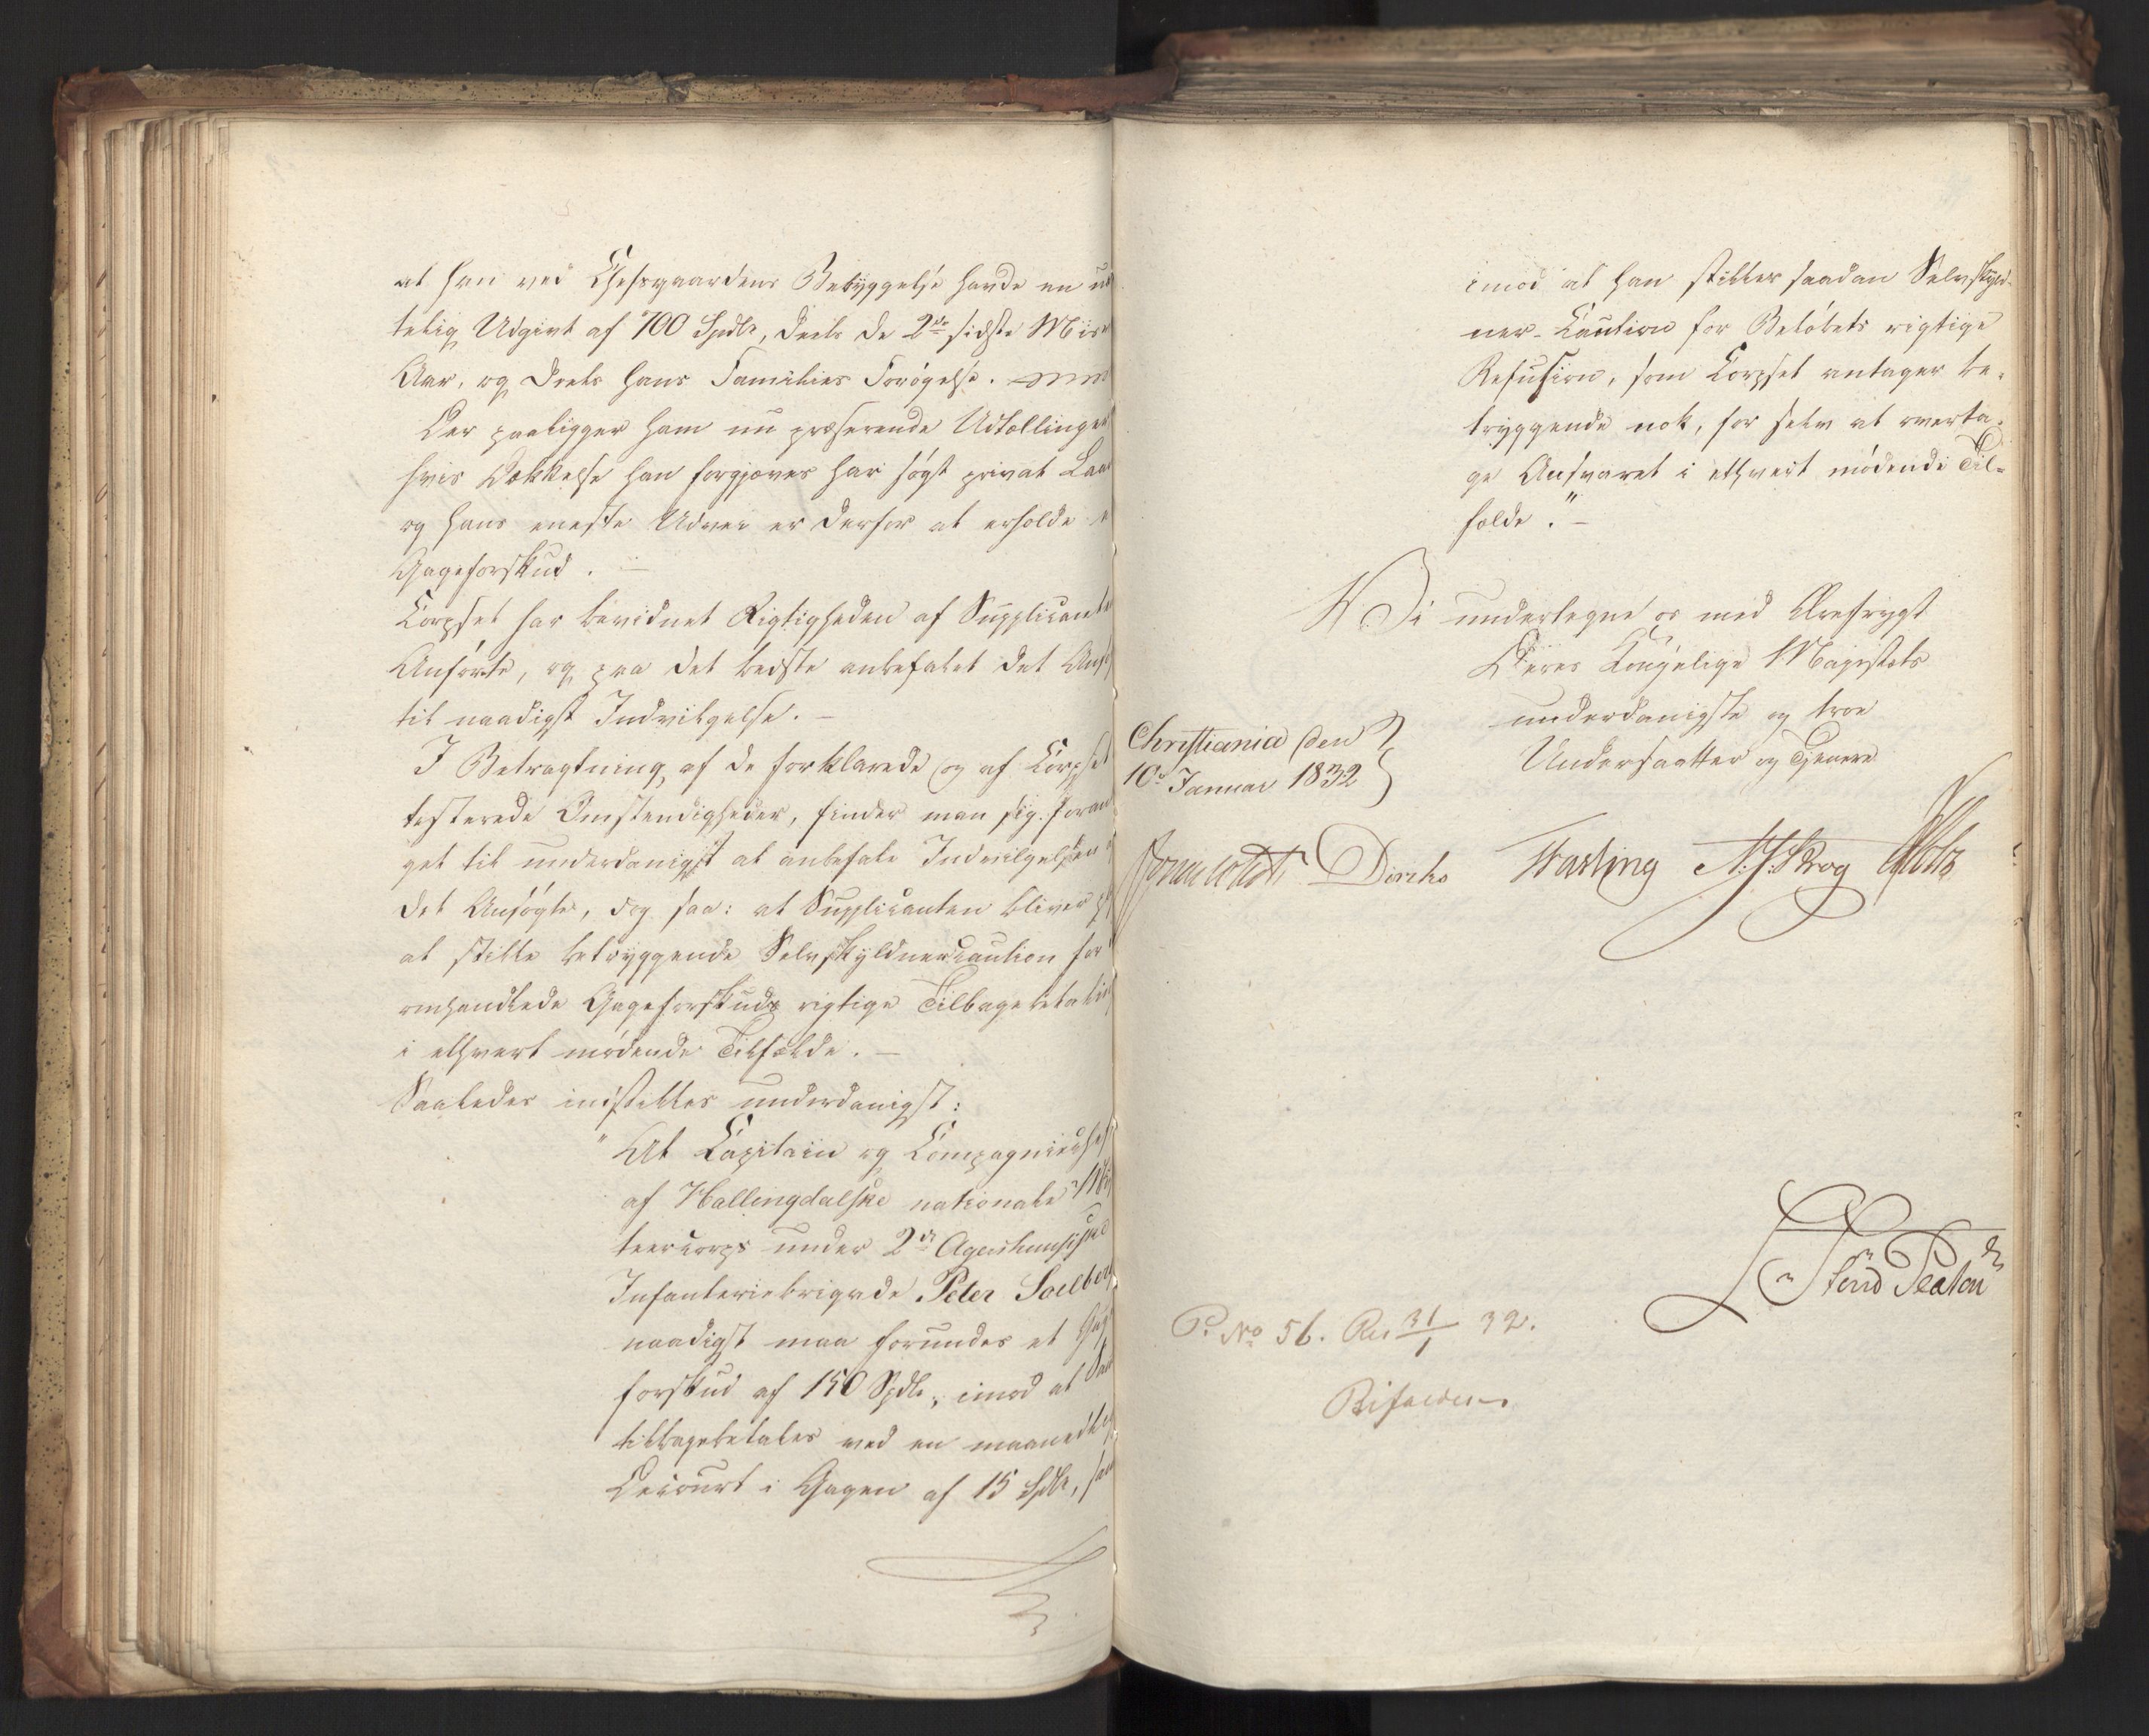 at han ved Chefsgaardens Bebyggelse havde en
telig Udgivt af 700 Spdlr, deels de 2de sidste Mis
Aar, og deels hans Families Forøgelse.
Der paaligger ham nu præserende Udtællinger
hvis Dækkelse han forgjæves har søgt privat Laan
og hans eneste Udvei er derfor at erholde
Gageforskud. –
Corpset har bevidnet Rigtigheden af Supplicantens
Anførte, og paa det bedste anbefalet det Ans
til naadigst Indvilgelse. –
I Betragtning af de forklarede og af Corpset
testerede Omstendigheder, finder man sig foran
get til underdanigst at anbefale Indvilgelsen
det Ansøgte, dog saa: at Supplicanten bliver
at stille betryggende Selvskyldnercaution for
omhandlede Gageforskuds rigtige Tilbagebetaling
i ethvert mødende Tilfælde. –
Saaledes indstilles underdanigst:
"At Capitain og Compagniechef
af Hallingdalske nationale Mus
teercorps under 2den Agershuusiske
Infanteriebrigade Peter Soelberg
naadigst maa forundes et Gage
forskud af 150 Spdlr, imod at
tilbagebetales ved en maanedlig
Decourt i Gagen af 15 Spdlr, samt
imod at han stiller saadan Selvskyld-
ner-Caution for Beløbets rigtige
Refusion, som Corpset antager be-
tryggende nok, for selv at overta-
ge Ansvaret i ethvert mødende Til-
fælde." –
Vi undertegne os med Ærefrygt
Deres Kongelige Majestæts
underdanigste og troe
Undersaatter og Tjenere
Christiania den
10de Januar 1832
Diriks Fasting N. J. Krog
P. No 56. Res 31/1 32.
Bifaldes